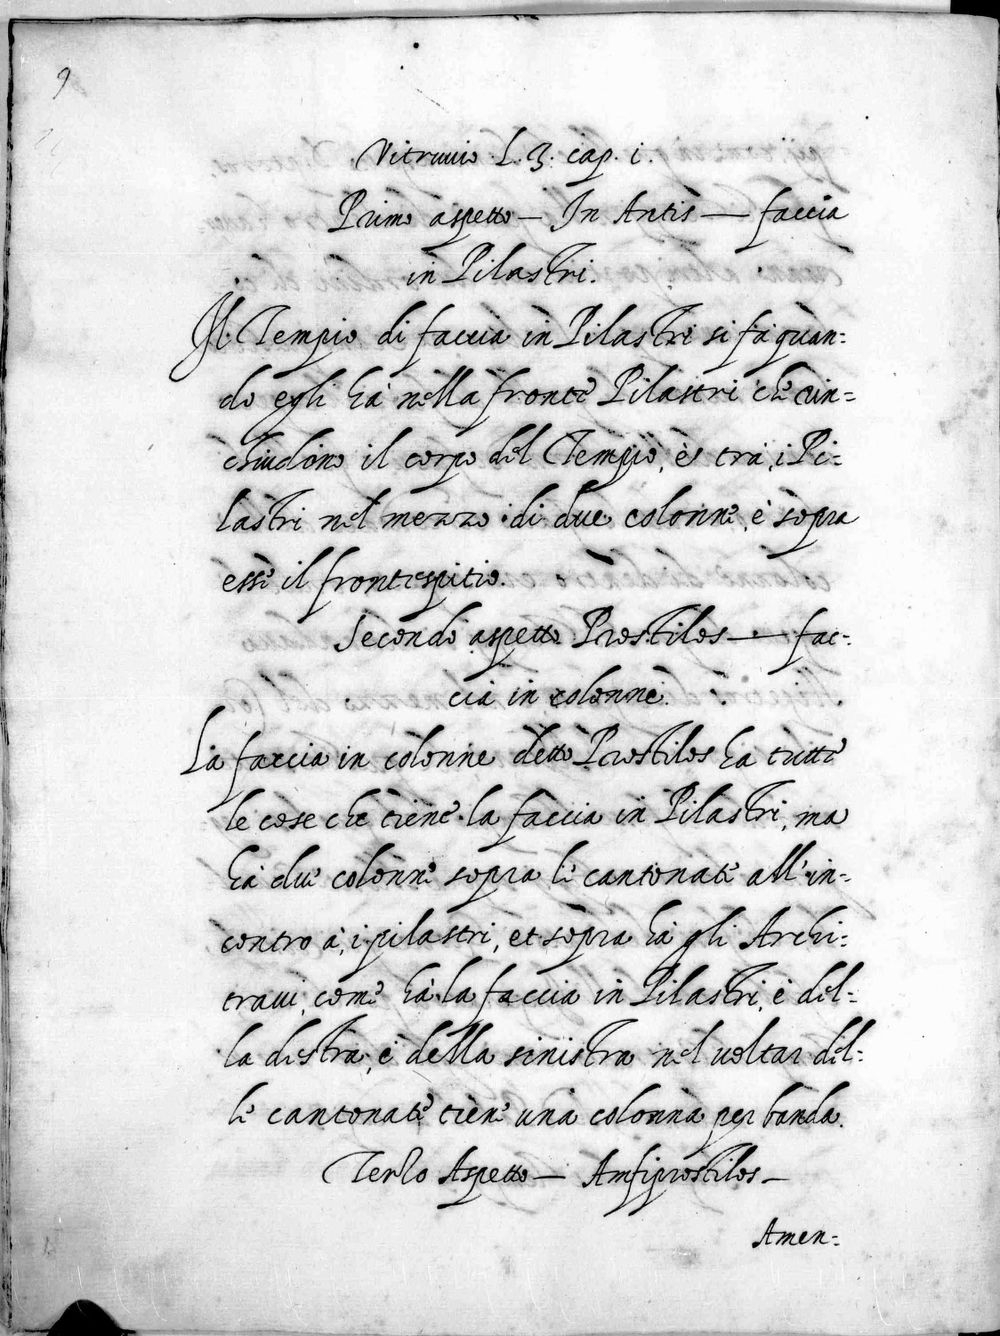 9
Vitruuio L. 3. cap. i.
Primo aspetto — In Antis — faccia
in Pilastri.
Il Tempio di faccia in Pilastri si fà quan=
do egli hà nella fronte Pilastri che rin=
chiudono il corpo del Tempio, è tra, i Pi=
lastri nel mezzo di due colonne, è sopra
esse il frontespitio.
Secondo aspetto Prostilos — fac=
cia in colonne.
La faccia in colonne detto Prostilos ha tutte
le cose che tiene la faccia in Pilastri, ma
hà due colonne sopra le cantonate all'in=
contro à, i pilastri, et sopra hà gli Archi=
traui, come hà la faccia in Pilastri, è del=
la destra, è della sinistra nel uoltar del=
le cantonate tiene una colonna per banda.
Terzo Aspetto — Amfiprostilos —
Amen=